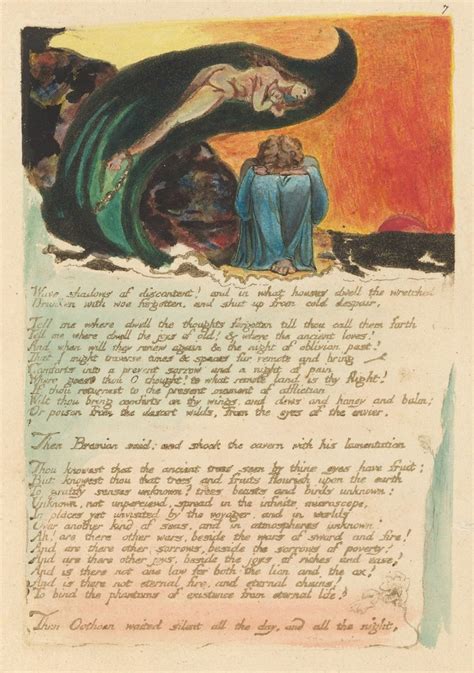 7
Wave shadows of discontent? and in what houses dwell the wretched
Drunken with woe forgotten, and shut up from cold despair.
Tell me where dwell the thoughts forgotten till thou call them forth
Tell me where dwell the joys of old! & where the ancient loves?
And when will they renew again & the night of oblivion past?
That I might traverse times & spaces far remote and bring
Comforts into a present sorrow and a night of pain
Where goest thou O thought! to what remote land is thy flight?
If thou returnest to the present moment of affliction
Wilt thou bring comforts on thy wings and dews and honey and balm;
Or poison from the desart wilds, from the eyes of the envier.
Then Bromion said: and shook the cavern with his lamentation
Thou knowest that the ancient trees seen by thine eyes have fruit;
But knowest thou that trees and fruits flourish upon the earth
To gratify senses unknown? trees beasts and birds unknown:
Unknown, not unpercievd, spread in the infinite microscope,
In places yet unvisited by the voyager, and in worlds
Over another kind of seas, and in atmospheres unknown.
Ah! are there other wars, beside the wars of sword and fire!
And are there other sorrows, beside the sorrows of poverty!
And are there other joys, beside the joys of riches and ease?
And is there not one law for both the lion and the ox?
And is there not eternal fire, and eternal chains?
To bind the phantoms of existence from eternal life?
Then Oothoon waited silent all the day, and all the night,